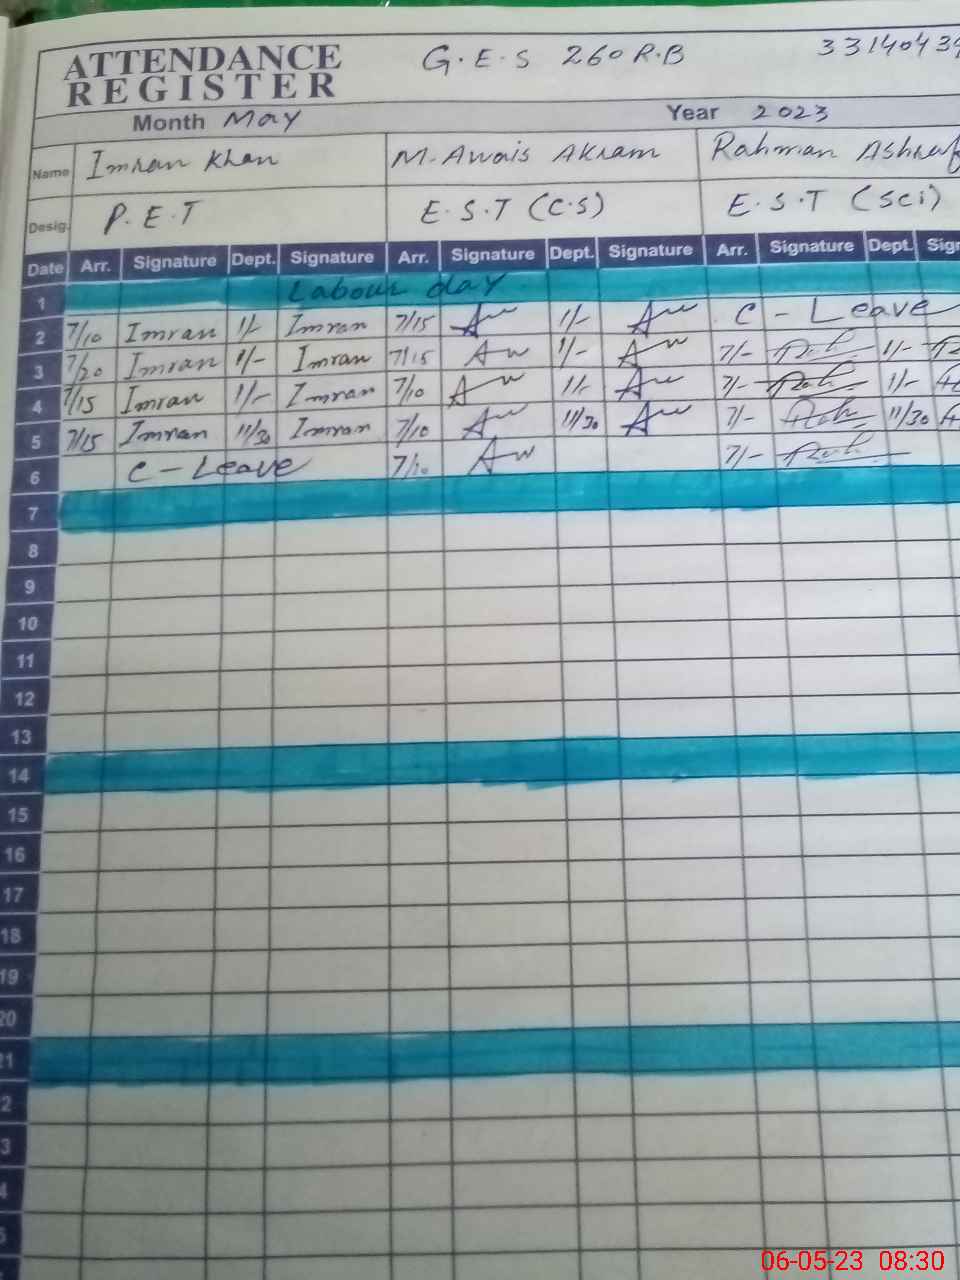 ATTENDANCE REGISTER G.E.S 260 R.B 3314043
Month May Year 2023
Name Imran Khan M. Awais Akram Rahman Ashraf
Desig. P.E.T E.S.T (C.S) E.S.T (Sci)
Date Arr. Signature Dept. Signature Arr. Signature Dept. Signature Arr. Signature Dept. Sign
1 Labour day
2 7/10 Imran 1/- Imran 7/15 Aw 1/- Aw C - Leave
3 7/20 Imran 1/- Imran 7/15 Aw 1/- Aw 7/- 1/-
4 7/15 Imran 1/- Imran 7/10 Aw 1/- Aw 7/- 1/-
5 7/15 Imran 11/30 Imran 7/10 Aw 11/30 Aw 7/- 11/30
6 C - Leave 7/10 Aw 7/-
7
8
9
10
11
12
13
14
15
16
17
18
19
20
21
2
3
4
5
06-05-23 08:30